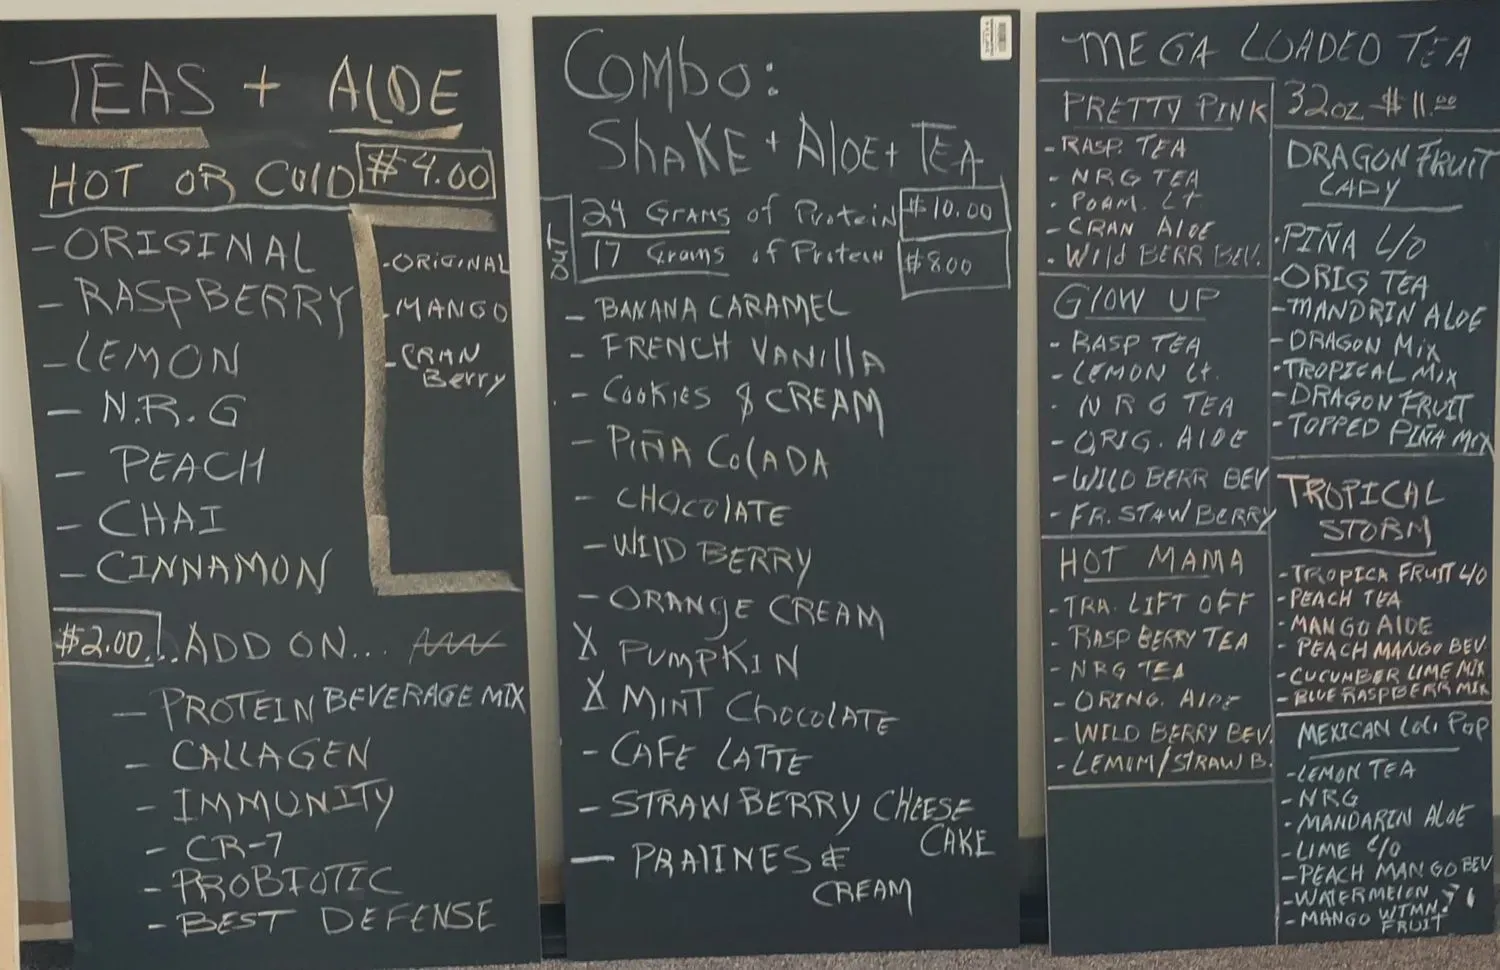 TEAS + ALOE
HOT OR COLD $4.00
- ORIGINAL
- RASPBERRY
- LEMON
- N.R.G
- PEACH
- CHAI
- CINNAMON
- ORIGINAL
- MANGO
- CRAN
Berry
$2.00...ADD ON...
- PROTEIN BEVERAGE MIX
- CALLAGEN
- IMMUNITY
- CR-7
- PROBIOTIC
- BEST DEFENSE
COMBO:
SHAKE + ALOE + TEA
24 GRAMS of Protein $10.00
17 Grams of Protein $8.00
- BANANA CARAMEL
- FRENCH VANILLA
- COOKIES & CREAM
- PIÑA COLADA
- CHOCOLATE
- WILD BERRY
- ORANGE CREAM
X PUMPKIN
X MINT CHOCOLATE
- CAFE LATTE
- STRAWBERRY CHEESE
CAKE
- PRALINES &
CREAM
MEGA LOADED TEA
32oz $11.00
PRETTY PINK
- RASP. TEA
- NRG TEA
- POAM. LT
- CRAN ALOE
- Wild BERR BEV.
GLOW UP
- RASP TEA
- LEMON Lt.
- NRG TEA
- ORIG. ALOE
- WILD BERR BEV
- FR. STAWBERRY
HOT MAMA
- TRA. LIFT OFF
- RASPBERRY TEA
- NRG TEA
- ORING. ALOE
- WILD BERRY BEV.
- LEMOM/STRAWB.
DRAGON FRUIT
LADY
- PIÑA L/O
- ORIG TEA
- MANDRIN ALOE
- DRAGON MIX
- TROPICAL MIX
- DRAGON FRUIT
- TOPPED PIÑA MIX
TROPICAL
STORM
- TROPICA FRUIT L/O
- PEACH TEA
- MANGO ALOE
- PEACH MANGO BEV.
- CUCUMBER LIME MIX
- BLUE RASPBERR MIX
MEXICAN LOLI POP
- LEMON TEA
- NRG
- MANDARIN ALOE
- LIME L/O
- PEACH MANGO BEV
- WATERMELON
- MANGO WTMN.
FRUIT